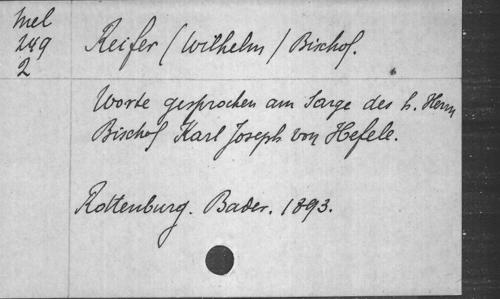 Mel
249
2
Reifer (Wilhelm) Bischof.
Worte gesprochen am Sarge des h. Herrn
Bischof Karl Joseph von Hefele.
Rottenburg. Bader. 1893.